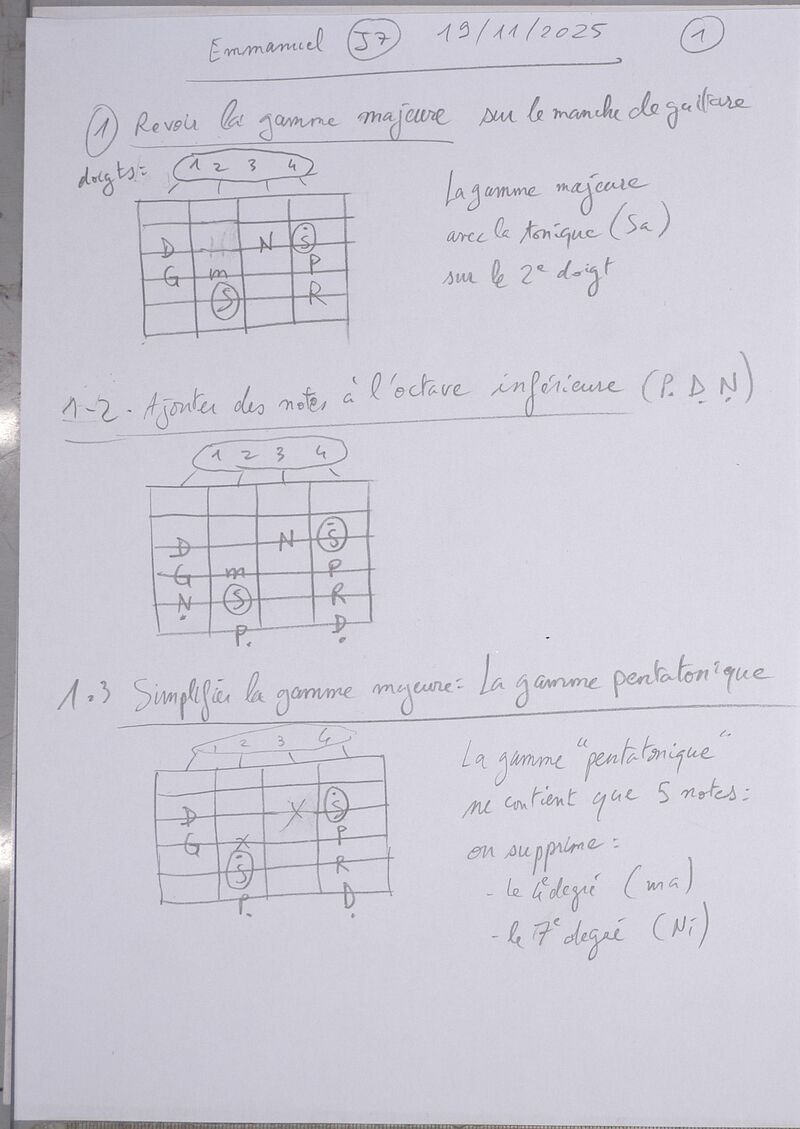 Emmanuel J7 19/11/2025 1
1 Revoir la gamme majeure sur le manche de guitare
doigts= 1 2 3 4
La gamme majeure
avec la tonique (Sa)
sur le 2e doigt
D N Ṡ
G m P
S R
1-2. Ajouter des notes à l'octave inférieure (P. Ḍ Ṇ)
1 2 3 4
D N Ṡ
G m P
Ṇ S R
P. Ḍ
1.3 Simplifier la gamme majeure= La gamme pentatonique
1 2 3 4
La gamme "pentatonique"
ne contient que 5 notes=
on supprime=
- le 4e degré (ma)
- le 7e degré (Ni)
D X Ṡ
G x P
Ṡ R
P. Ḍ